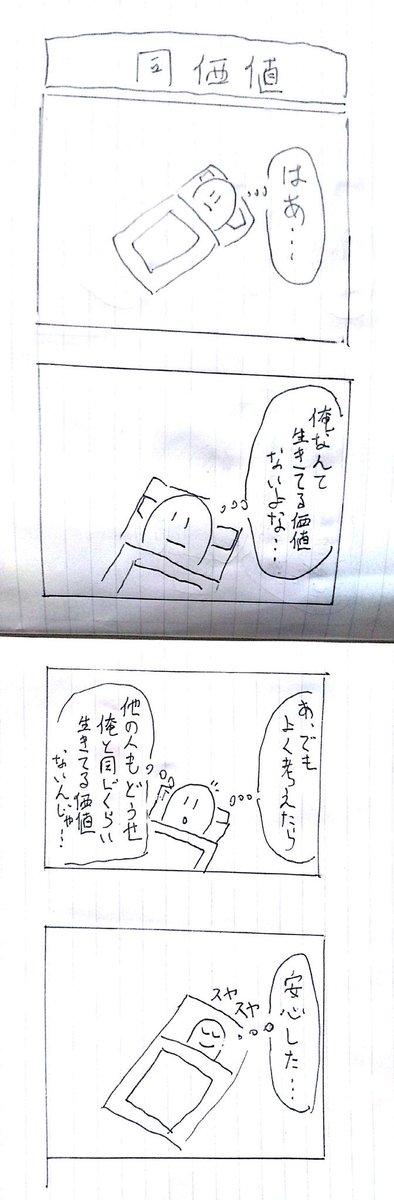 同価値
はあ…
俺なんて
生きてる価値
ないよな…
あ、でも
よく考えたら
他の人もどうせ
俺と同じくらい
生きてる価値
ないんじゃ…
スヤ
スヤ
安心した…